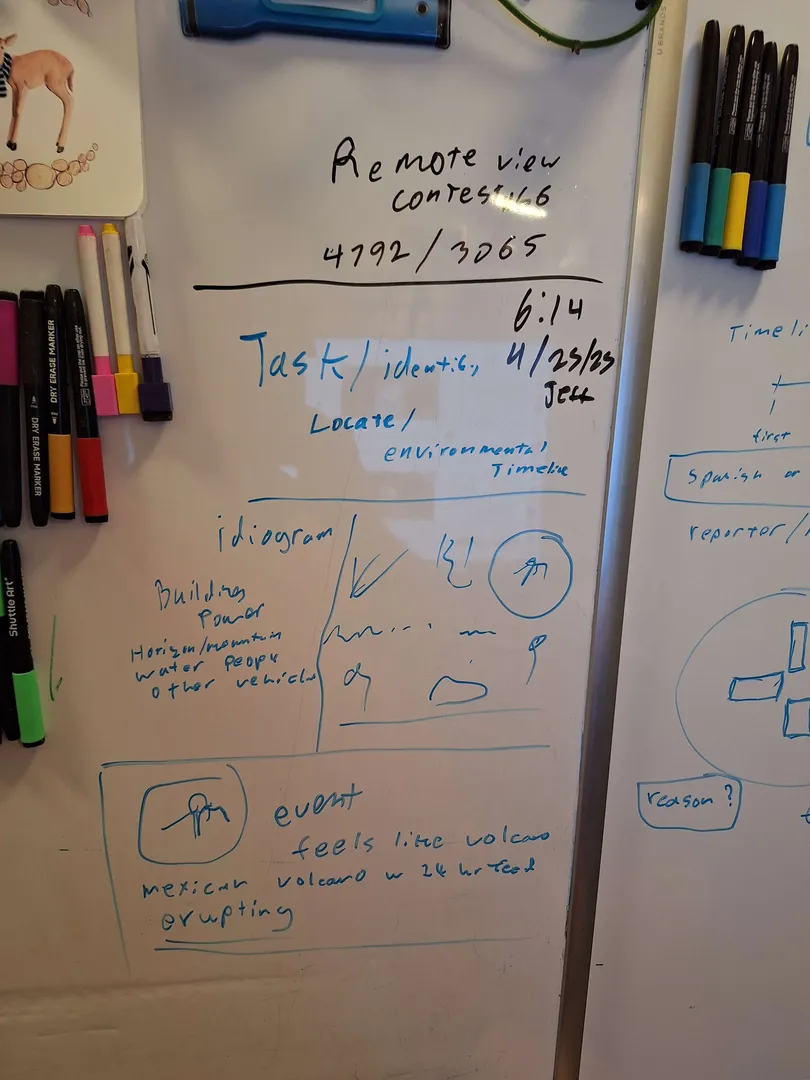 U BRANDS
Remote view
contest 66
4792/3065
6:14
4/25/25
Jeff
Task/identify
Locate/
environmental
Timeline
idiogram
Building
Power
Horizon/mountain
water people
other vehicle
event
feels like volcano
mexican volcano w 24 hr feed
erupting
DRY ERASE MARKER
DRY ERASE MARKER
Shuttle Art
Timeli
first
Spanish or
reporter/
reason?